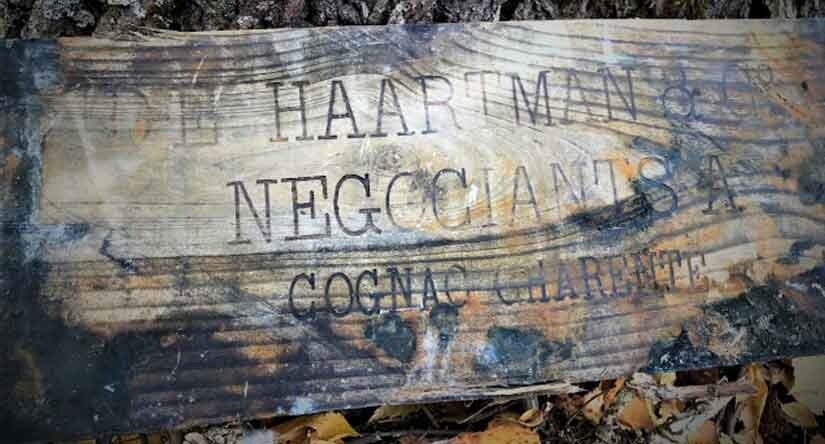 DE HAARTMAN & Cº
NEGOCIANTS A
COGNAC CHARENTE